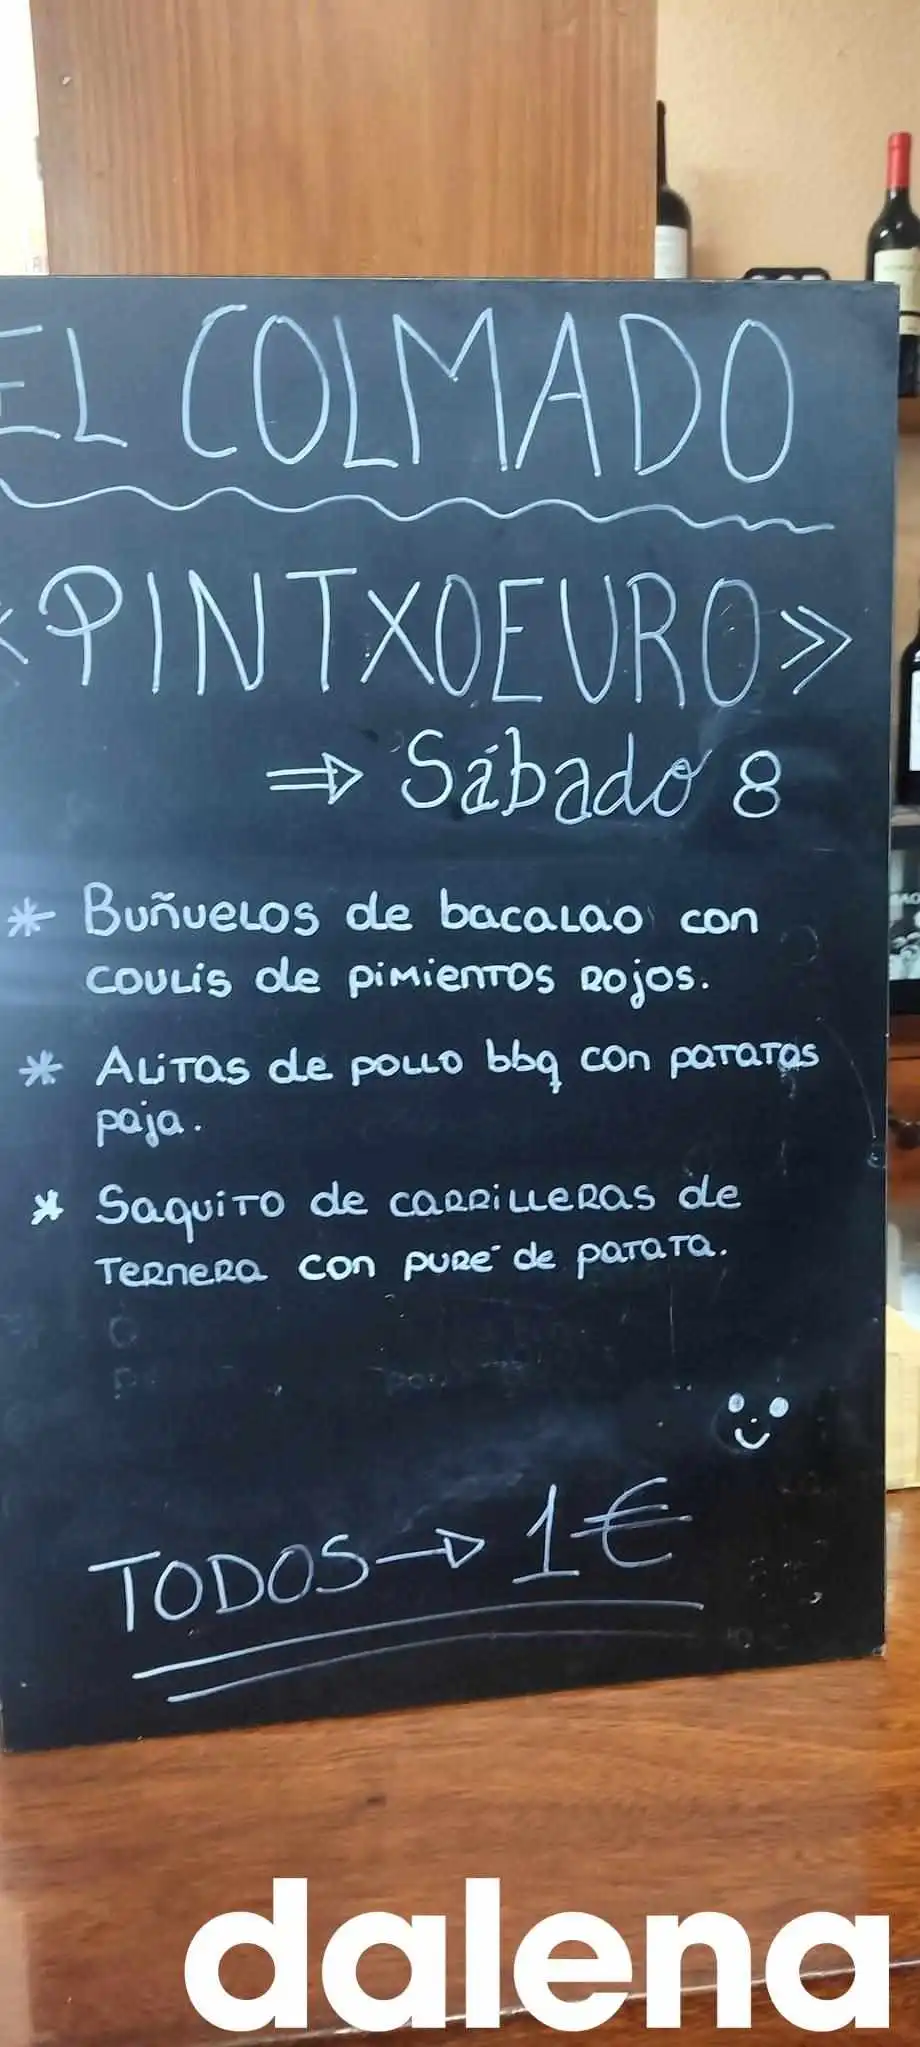 EL COLMADO
«PINTXOEURO»
⇒ Sábado 8
* Buñuelos de bacalao con
coulis de pimientos rojos.
* Alitas de pollo bbq con patatas
paja.
* Saquito de carrilleras de
ternera con puré de patata.
TODOS → 1€
dalena